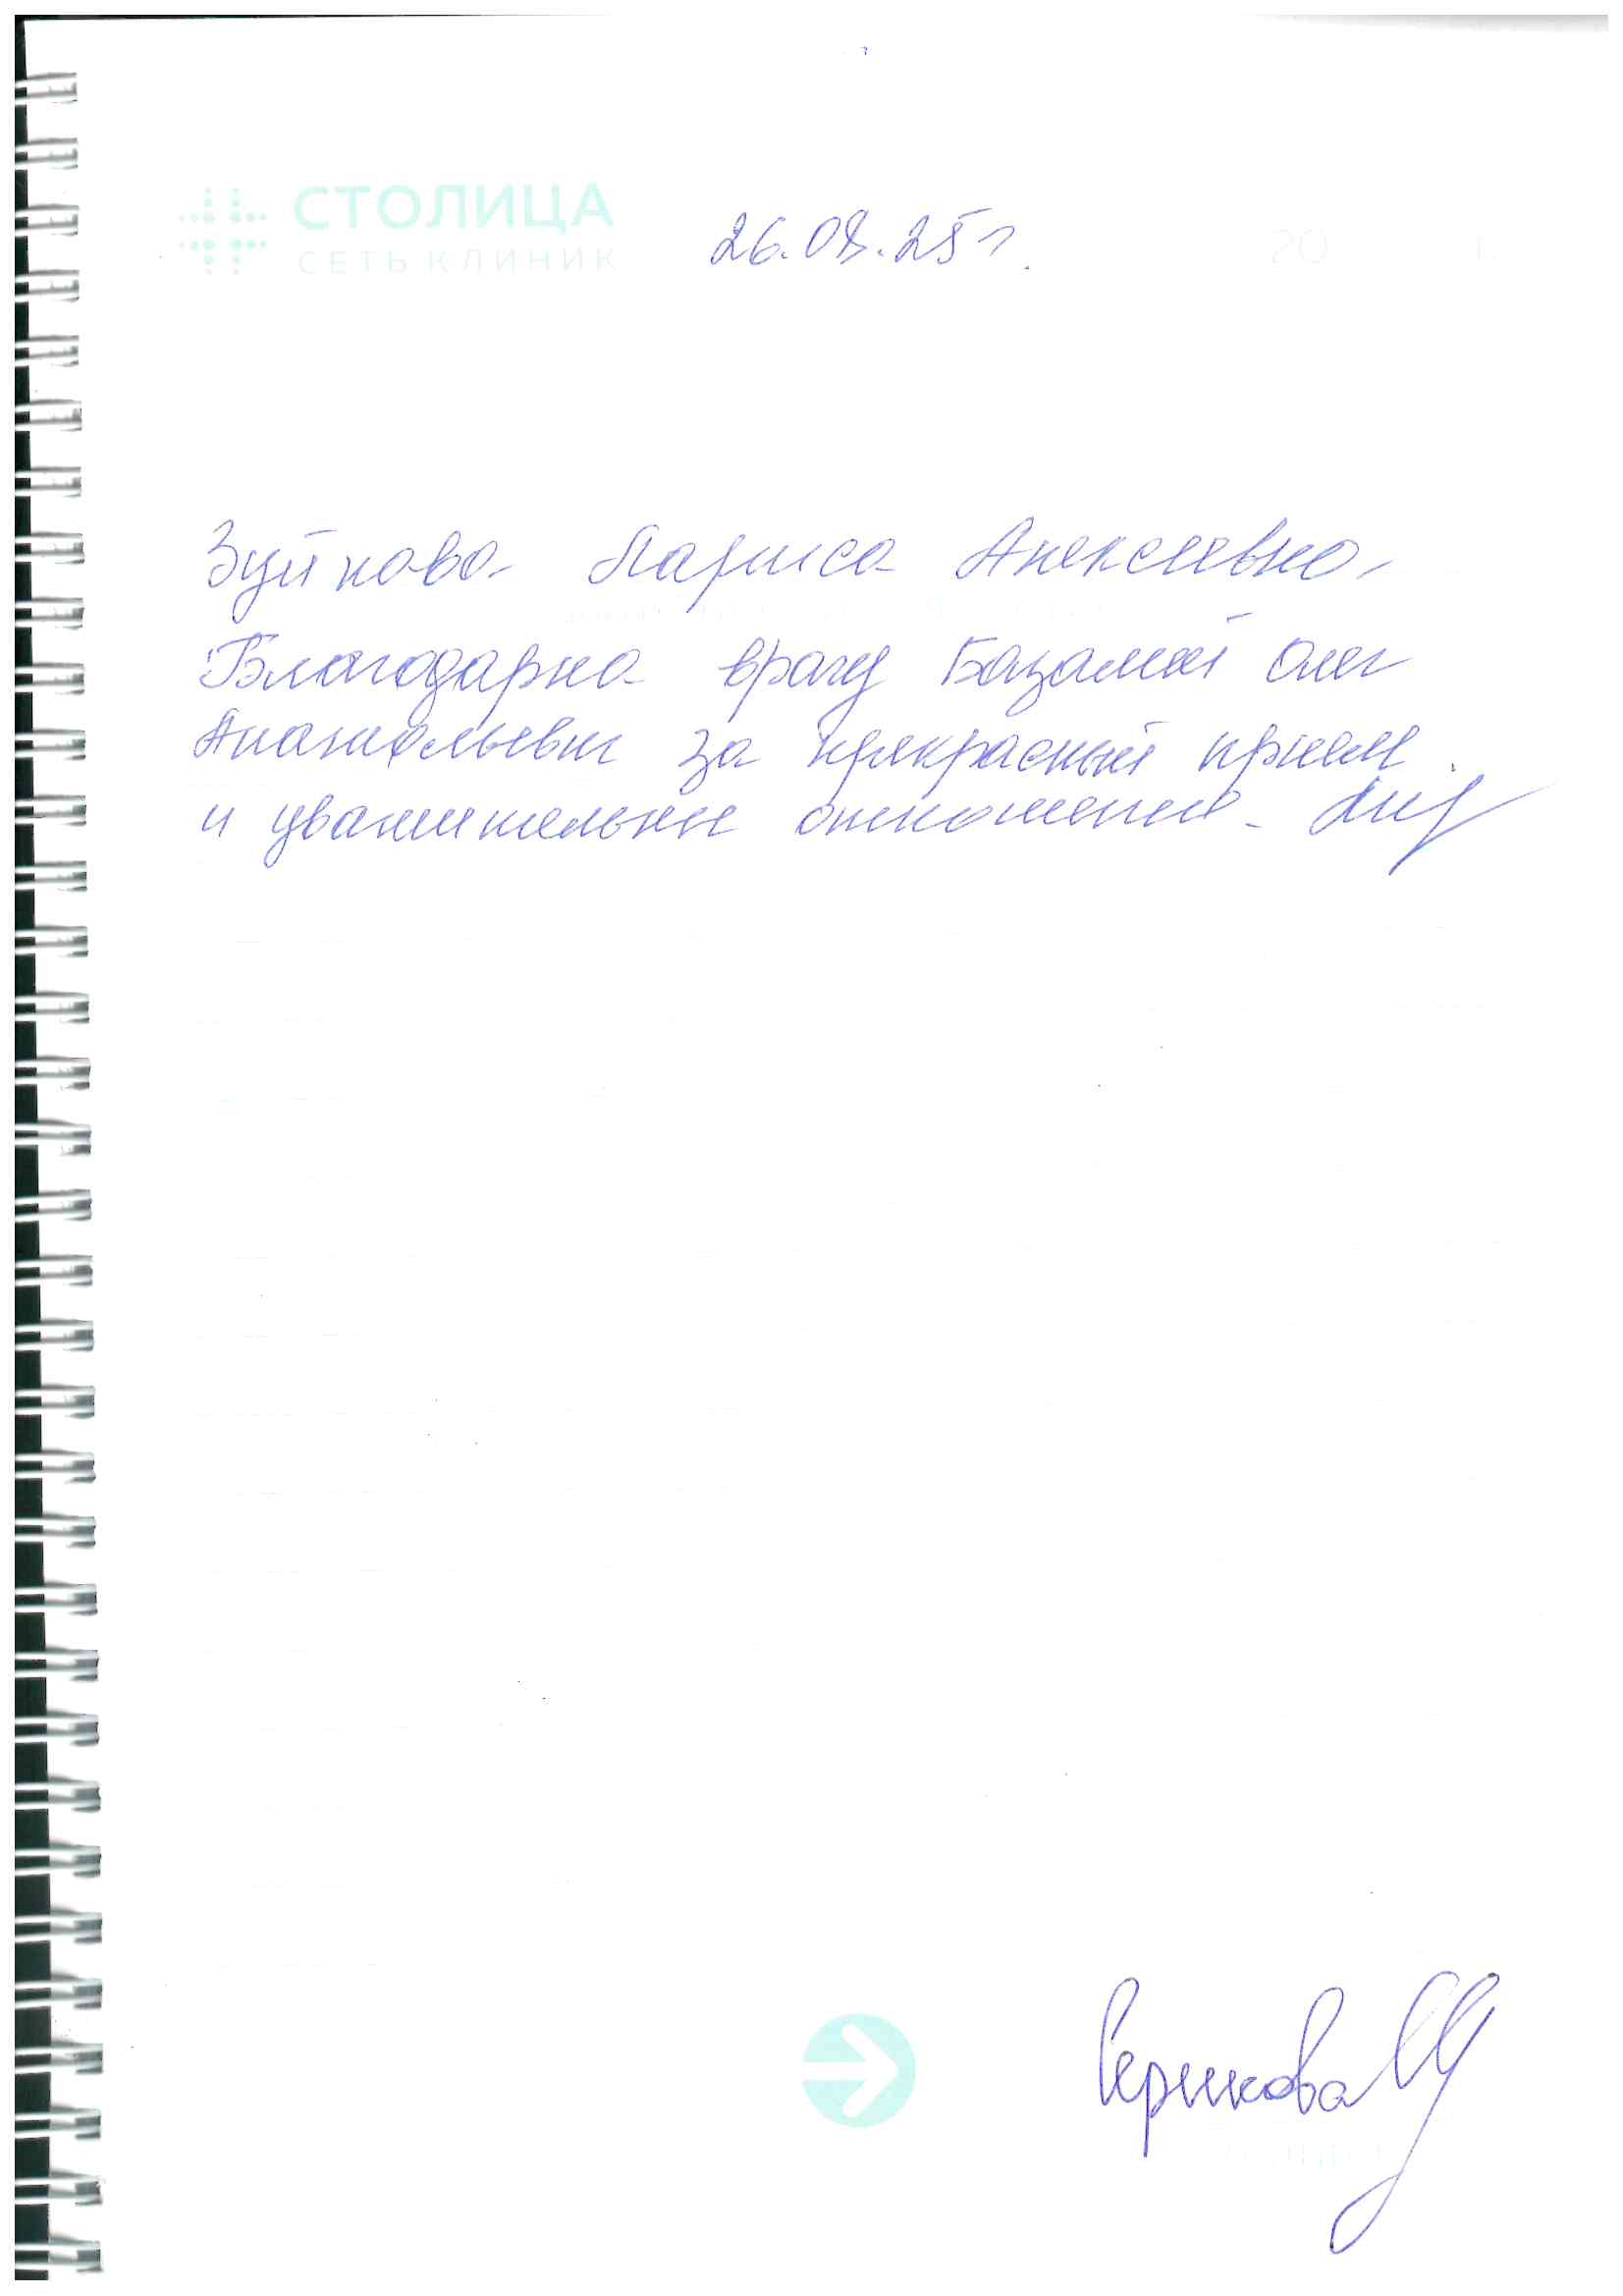 СТОЛИЦА
СЕТЬ КЛИНИК
26.08.25 г.
20 г.
Зуйкова Лариса Алексеевна
Благодарна врачу Базалий Олег
Анатольевич за прекрасный прием
и уважительное отношение.
Серикова